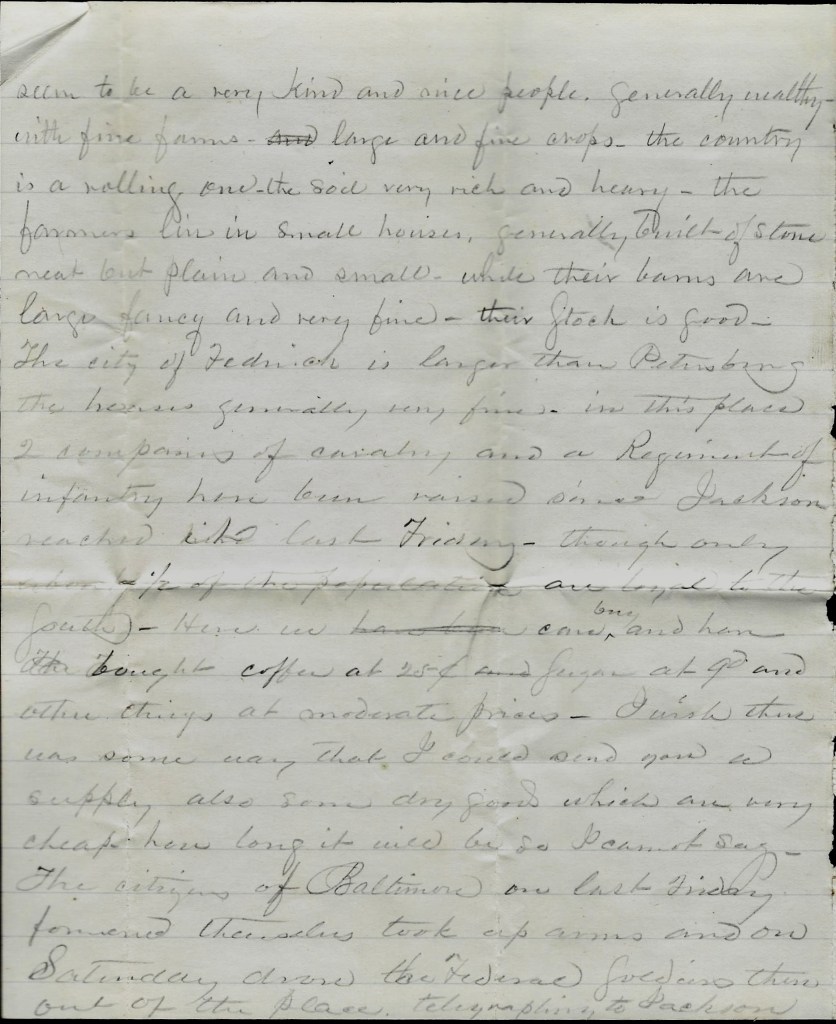 seem to be a very kind and nice people. generally wealthy
with fine farms - and large and fine crops - the country
is a rolling one - the soil very rich and heavy - the
farmers live in small houses, generally built of stone
neat but plain and small - while their barns are
large fancy and very fine - their Stock is good -
The city of Fedrick is larger than Petersburg
the houses generally very fine - in this place
2 companies of cavalry and a Regiment of
infantry have been raised since Jackson
reached last Friday - though only
about 1/2 of the population are loyal to the
South) - Here we can buy, and have
bought coffee at 25¢ and Sugar at 9d and
other things at moderate prices - I wish there
was some way that I could send you a
supply also some dry goods which are very
cheap how long it will be so I cannot say -
The citizens of Baltimore on last Friday
formed themselves took up arms and on
Saturday drove the Federal Soldiers there
out of the place. telegraphing to Jackson